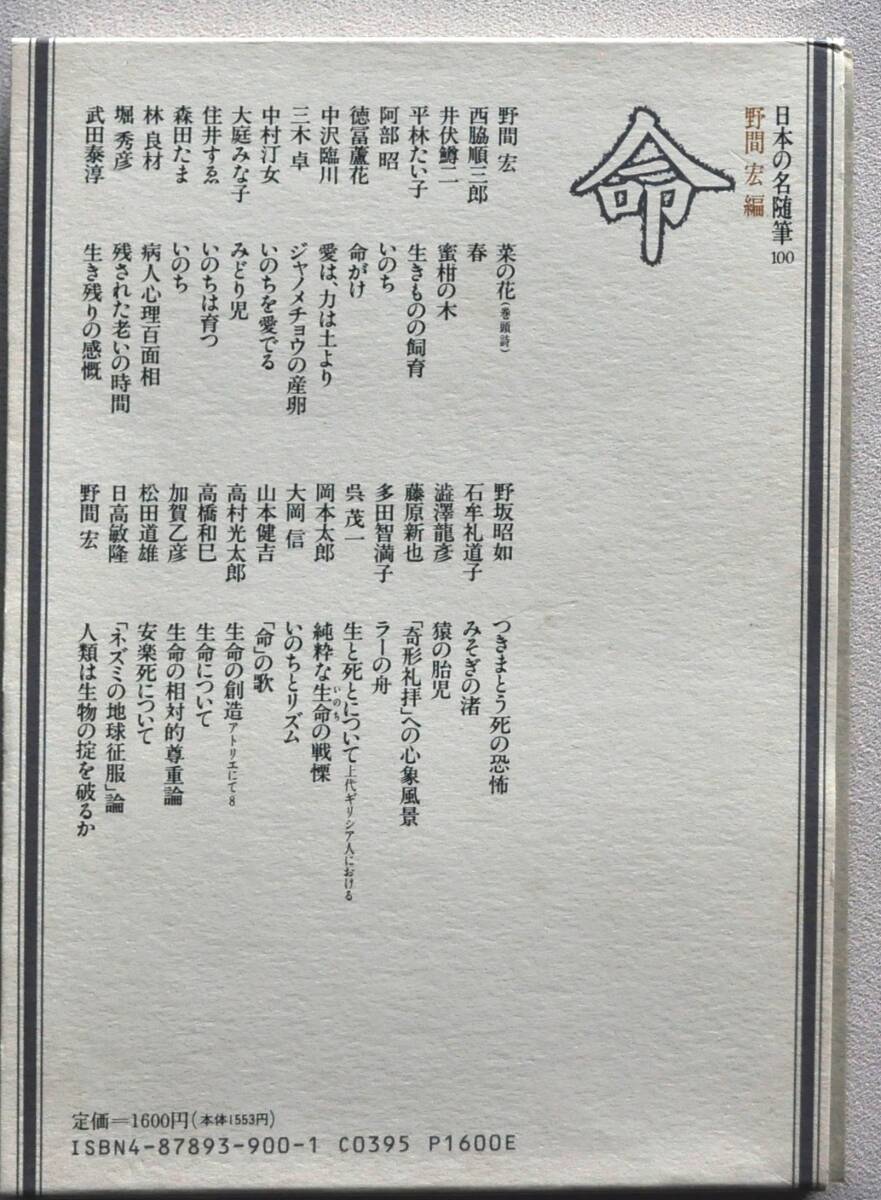 日本の名随筆100
野間 宏 編
命
野間 宏 菜の花(巻頭詩)
西脇順三郎 春
井伏鱒二 蜜柑の木
平林たい子 生きものの飼育
阿部 昭 いのち
徳冨蘆花 命がけ
中沢臨川 愛は、力は土より
三木 卓 ジャノメチョウの産卵
中村汀女 いのちを愛でる
大庭みな子 みどり児
住井すゑ いのちは育つ
森田たま いのち
林 良材 病人心理百面相
堀 秀彦 残された老いの時間
武田泰淳 生き残りの感慨
野坂昭如 つきまとう死の恐怖
石牟礼道子 みそぎの渚
澁澤龍彦 猿の胎児
藤原新也 「奇形礼拝」への心象風景
多田智満子 ラーの舟
呉 茂一 生と死とについて上代ギリシア人における
岡本太郎 純粋な生命の戦慄
いのち
大岡 信 いのちとリズム
山本健吉 「命」の歌
高村光太郎 生命の創造アトリエにて8
高橋和巳 生命について
加賀乙彦 生命の相対的尊重論
松田道雄 安楽死について
日高敏隆 「ネズミの地球征服」論
野間 宏 人類は生物の掟を破るか
定価=1600円(本体1553円)
ISBN4-87893-900-1 C0395 P1600E